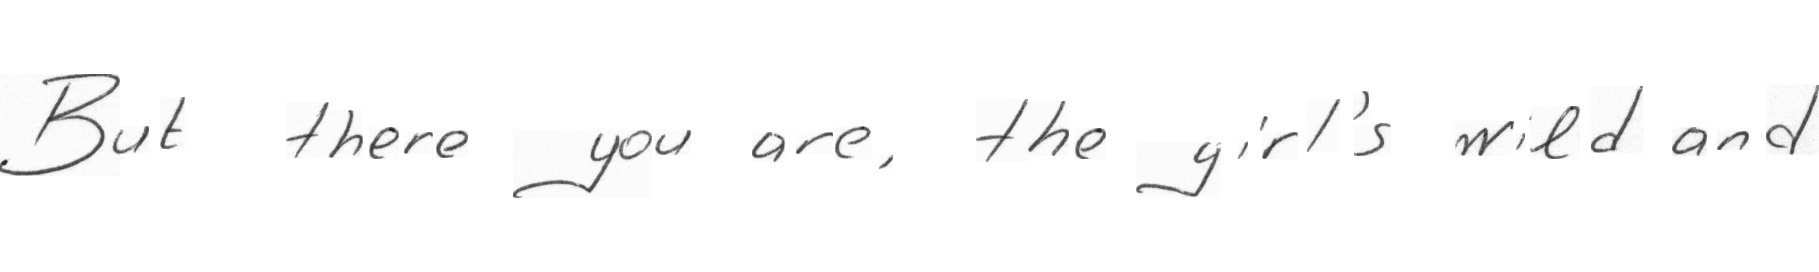 But there you are, the girl's wild and